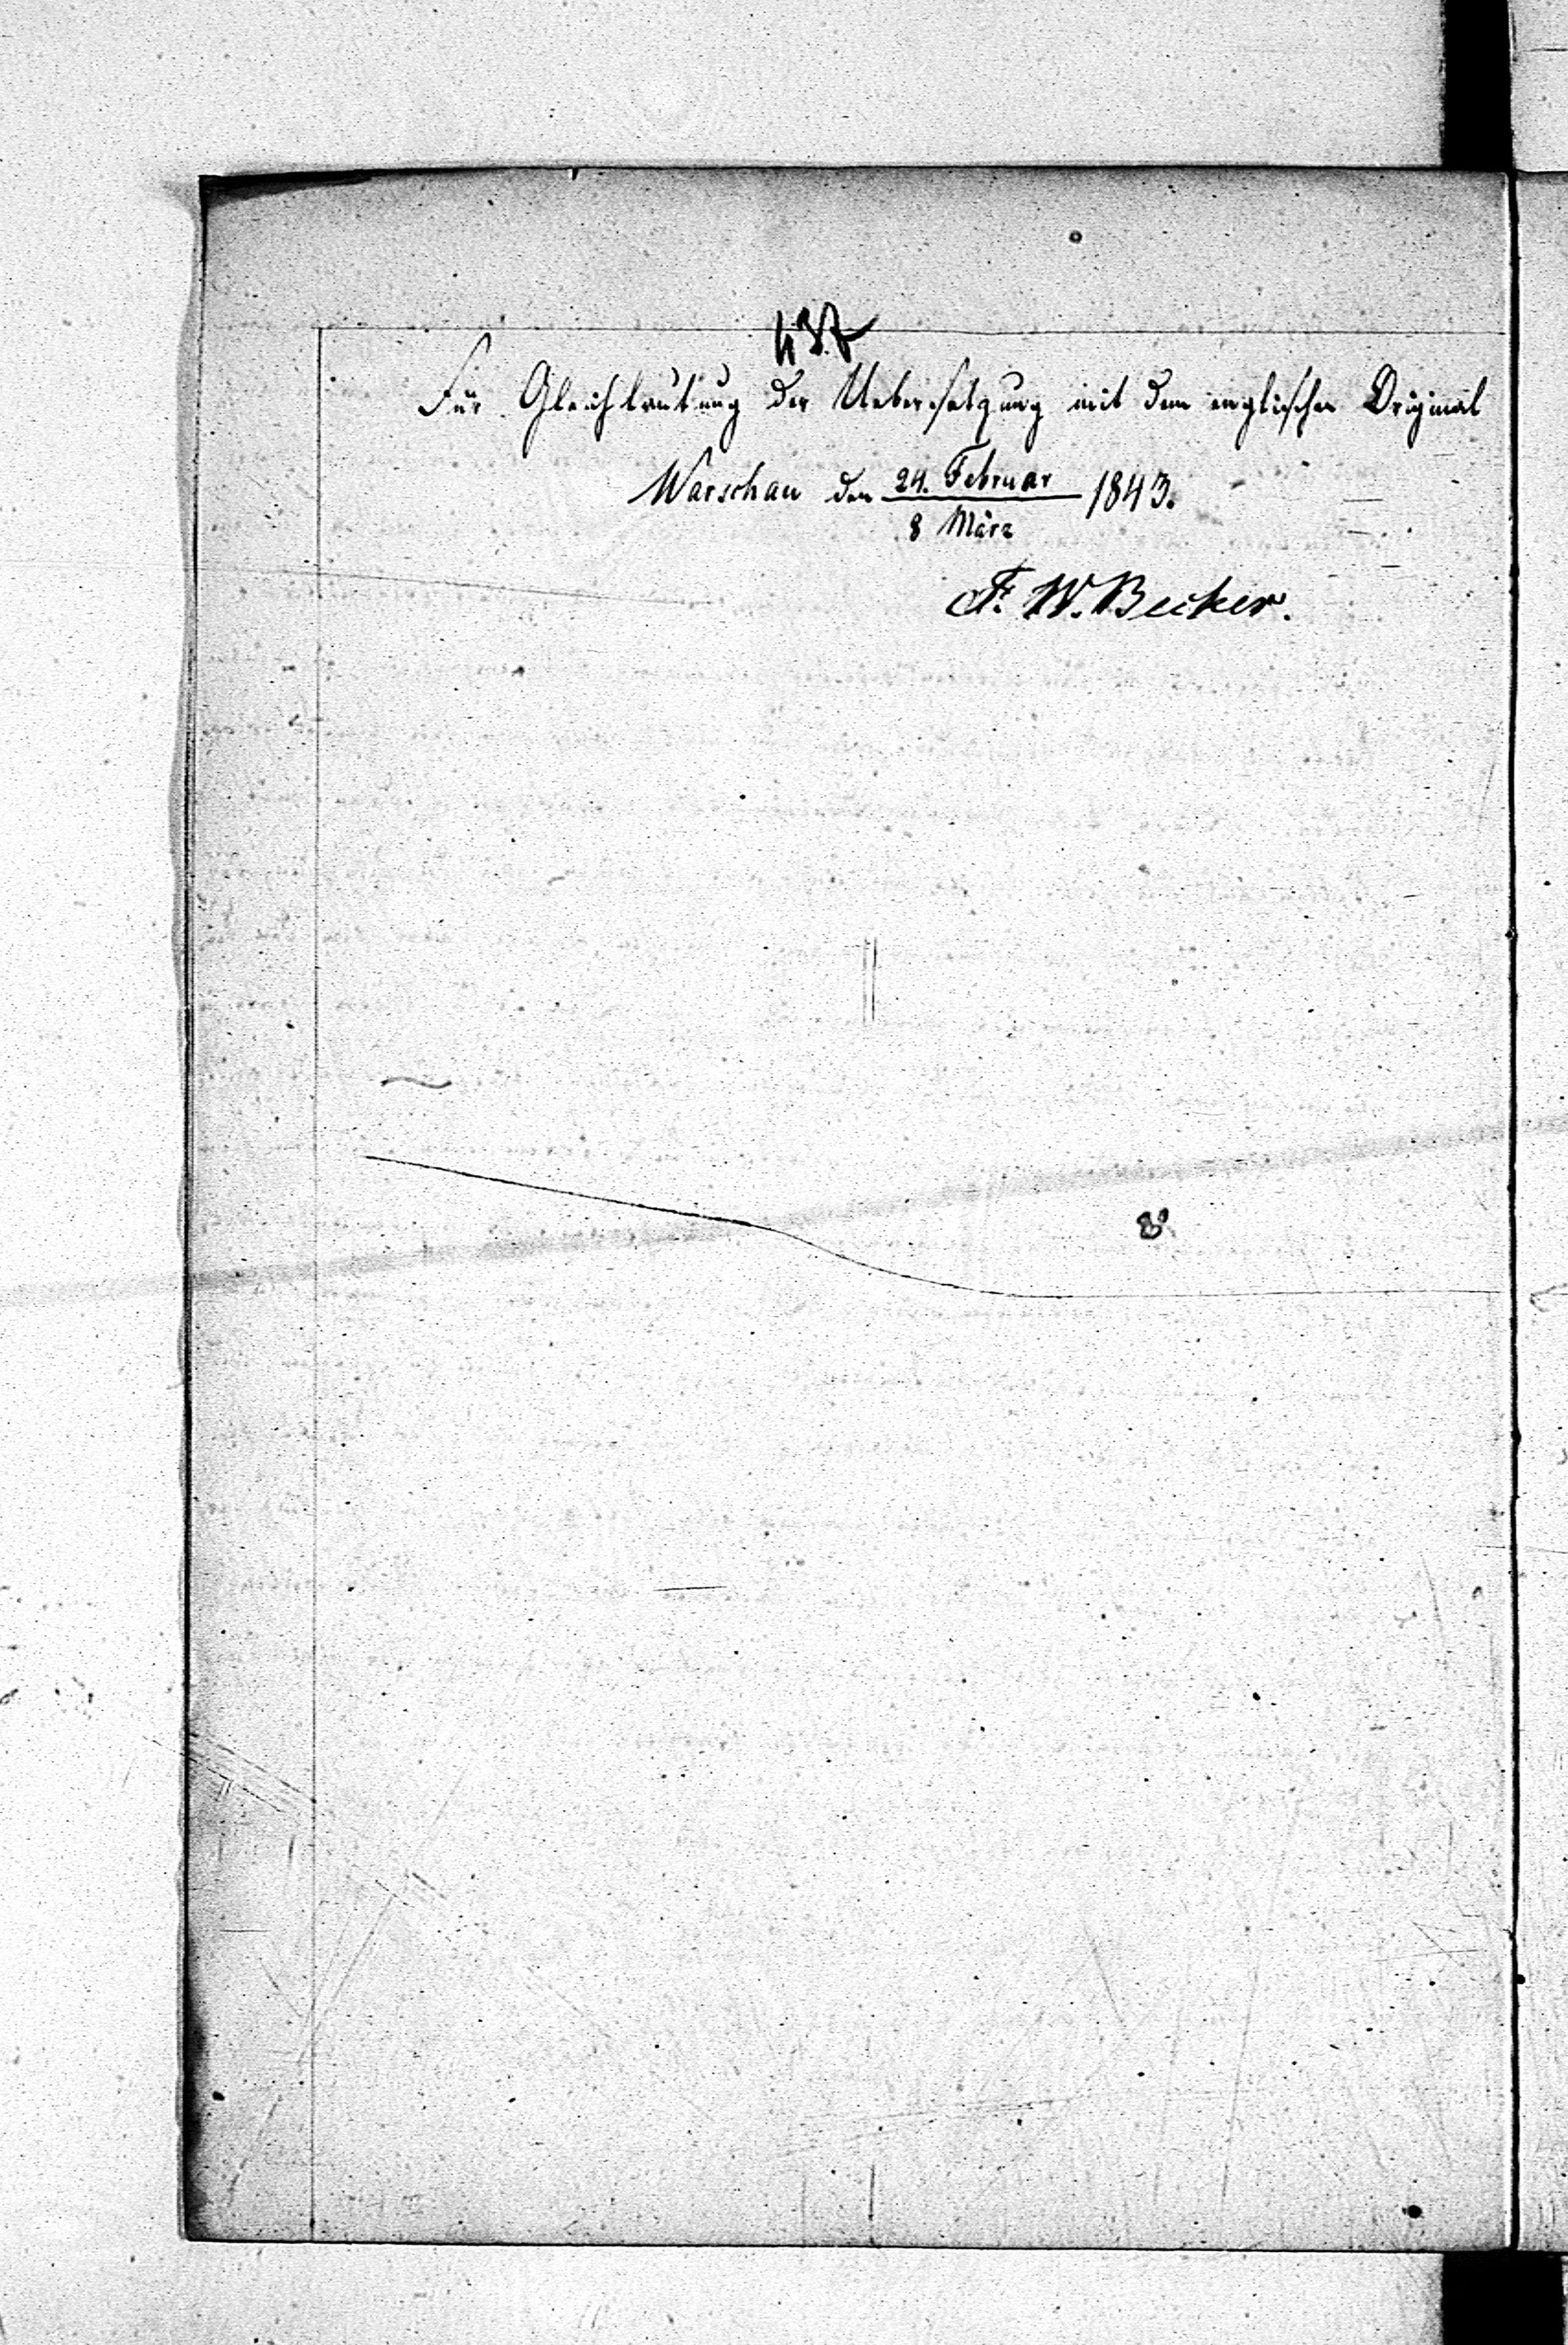 437
Für Gleichlautung der Uebersetzung mit dem englischen Original
Warschau den 24. Februar / 8 März 1843.
F. W. Becker.